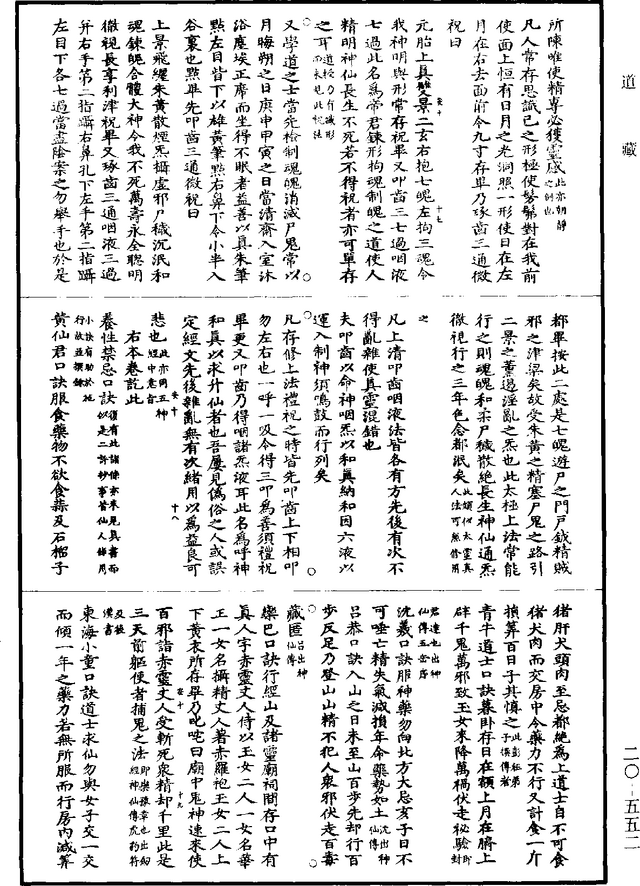 道藏
所陳唯使精專必獲靈感此亦朝靜之例也
凡人常存思識己之形極使髣髴對在我前
使面上恒有日月之光洞照一形使日在左
月在右去面前令九寸存畢乃琢齒三通微
祝曰
元胎上真雙景二玄右抱七魄左拘三魂令
我神明與形常存祝畢又叩齒三七過咽液
七過此名爲帝君鍊形拘魂制魄之道使人
精明神仙長生不死若不得祝者亦可單存
之耳
又學道之士當先檢制魂魄消滅尸鬼常以
月晦朔之日庚申甲寅之日當清齋入室沐
浴塵埃正席而坐得不眠者益善以真朱筆
點左目眥下以雄黃筆點右鼻下令小半入
谷裏也點畢先叩齒三通微祝曰
上景飛纏朱黃散煙炁攝虛邪尸穢沉泯和
魂鍊魄合體大神令我不死萬壽永全聰明
徹視長享利津祝畢又琢齒三通咽液三過
并右手第二指躡右鼻孔下左手第二指躡
左目下各七過當盡陰案之勿舉手也於是
都畢按此二處是七魄遊尸之門戶鈇精賊
邪之津梁矣故受朱黃之精塞尸鬼之路引
二景之薰遏淫亂之炁也此太極上法常能
行之則魂魄和柔尸穢散絕長生神仙通炁
徹視行之三年色念都泯矣
之
凡上清叩齒咽液法皆各有方先後有次不
得亂雜使真靈混錯也
夫叩齒以命神咽炁以和真納和因六液以
運入制神須鳴鼓而行列矣
凡存修上法禮祝之時皆先叩齒上下相叩
勿左右也一呼一吸令得三叩爲善須禮祝
畢更又叩齒乃得咽諸炁液耳此名爲呼神
和真以求升仙者也吾屢見僞俗之人或誤
定經文先後雜亂無有次緒用以爲益良可
悲也此亦同五神經中意旨
右本卷訖此
養性禁忌口訣
黃仙君口訣服食藥物不欲食蒜及石榴子
猪肝犬頭肉至忌都絕爲上道士自不可食
猪犬肉而交房中令藥力不行又計食一斤
損筭百日子其慎之此彭祖弟子撰傳者
青牛道士口訣暮卧存日在額上月在臍上
辟千鬼萬邪致玉女來降萬禍伏走秘驗封君達也出神仙傳五岳序
沈羲口訣服神藥勿向北方大忌亥子日不
可唾亡精失氣減損年命藥勢如土沈出神仙傳
呂恭口訣入山之日未至山百步先却行百
步反足乃登山山精不犯人衆邪伏走百毒
藏匿呂出神仙傳
欒巴口訣行經山及諸靈廟祠間存口中有
真人字赤靈丈人侍以玉女二人一女名華
正一女名攝精丈人著赤羅袍玉女二人上
下黃衣所存畢乃叱咤曰廟中鬼神速來使
百邪詣赤靈丈人受斬死衆精却千里此是
三天前驅使者捕鬼之法
東海小童口訣道士求仙勿與女子交一交
而傾一年之藥力若無所服而行房內減筭
二〇-五五二